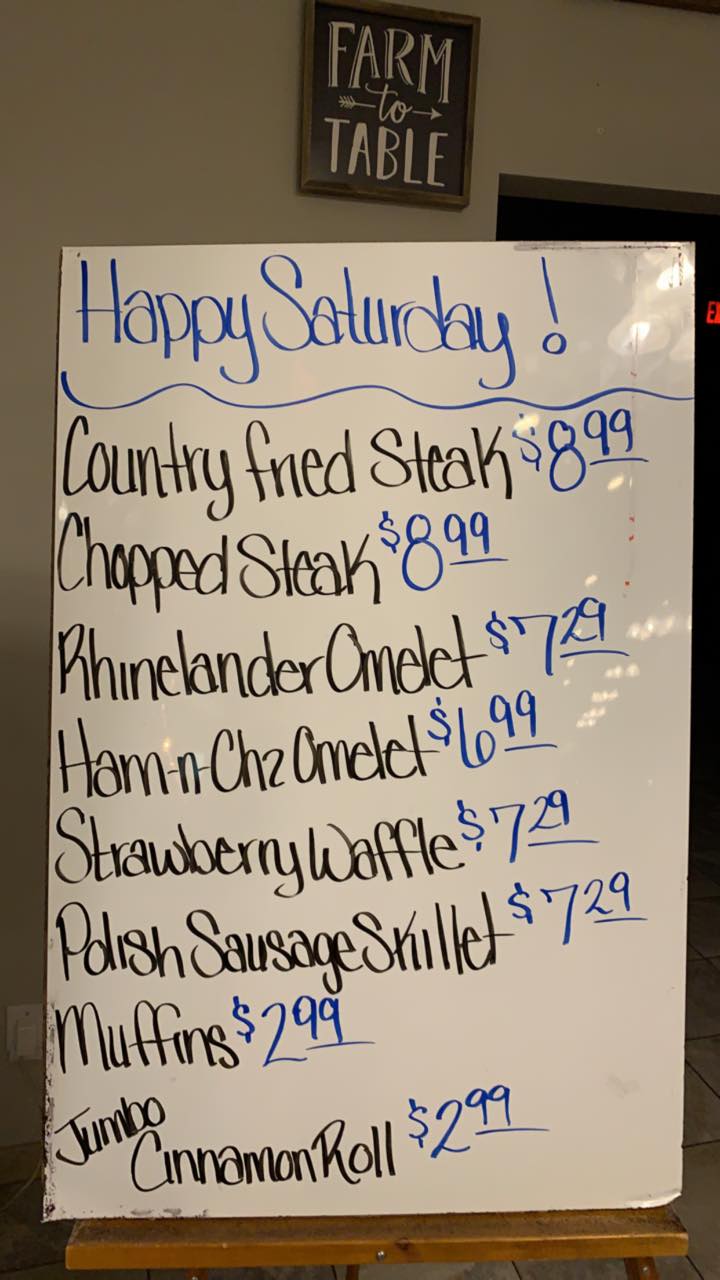 FARM
to
TABLE
Happy Saturday!
Country fried Steak $8.99
Chopped Steak $8.99
Rhinelander Omelet $7.29
Ham-n-Chz Omelet $6.99
Strawberry Waffle $7.29
Polish Sausage Skillet $7.29
Muffins $2.99
Jumbo
Cinnamon Roll $2.99